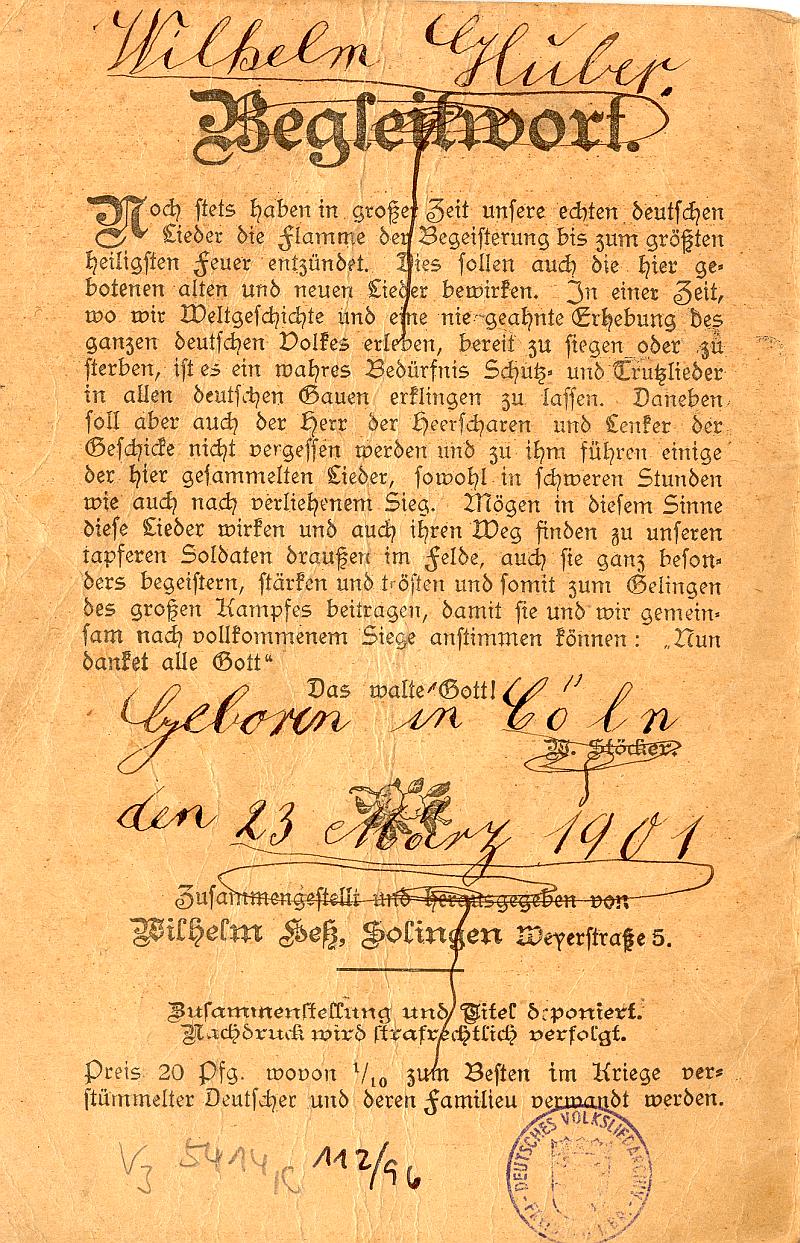 Wilhelm Huber.
Begleitwort.
Noch stets haben in großer Zeit unsere echten deutschen
Lieder die Flamme der Begeisterung bis zum größten
heiligsten Feuer entzündet. Dies sollen auch die hier ge-
botenen alten und neuen Lieder bewirken. In einer Zeit,
wo wir Weltgeschichte und eine nie-geahnte Erhebung des
ganzen deutschen Volkes erleben, bereit zu siegen oder zu
sterben, ist es ein wahres Bedürfnis Schutz- und Trutzlieder
in allen deutschen Gauen erklingen zu lassen. Daneben
soll aber auch der Herr der Heerscharen und Lenker der
Geschicke nicht vergessen werden und zu ihm führen einige
der hier gesammelten Lieder, sowohl in schweren Stunden
wie auch nach verliehenem Sieg. Mögen in diesem Sinne
diese Lieder wirken und auch ihren Weg finden zu unseren
tapferen Soldaten draußen im Felde, auch sie ganz beson-
ders begeistern, stärken und trösten und somit zum Gelingen
des großen Kampfes beitragen, damit sie und wir gemein-
sam nach vollkommenem Siege anstimmen können: „Nun
danket alle Gott“
Das walte Gott!
Geboren in Cöln
W. Stöcker.
den 23 März 1901
Zusammengestellt und herausgegeben von
Wilhelm Heß, Solingen Weyerstraße 5.
Zusammenstellung und Titel deponiert.
Nachdruck wird strafrechtlich verfolgt.
Preis 20 Pfg. wovon 1/10 zum Besten im Kriege ver-
stümmelter Deutscher und deren Familieu verwandt werden.
V3 5414 112/96
DEUTSCHES VOLKSLIEDARCHIV